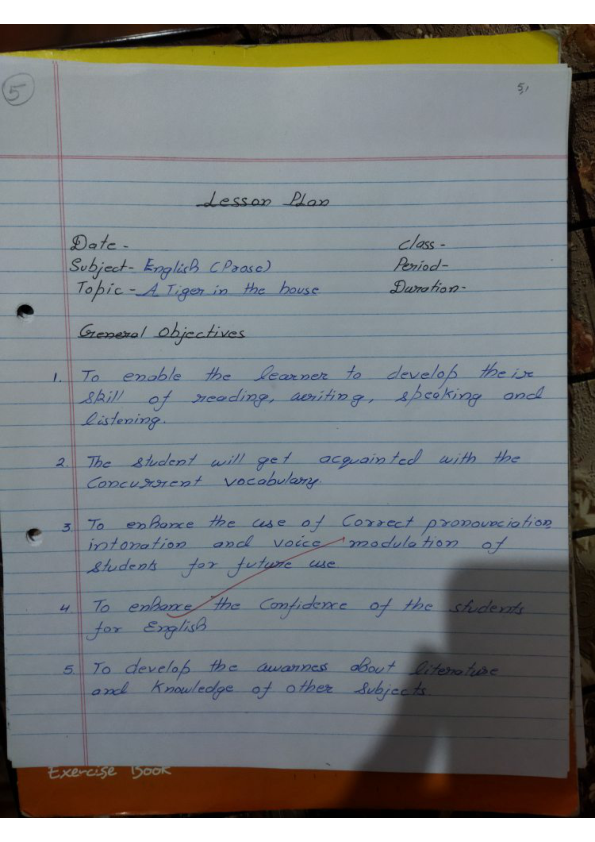 5
Lesson Plan
Date - Class -
Subject - English (Prose) Period -
Topic - A Tiger in the house Duration -
General Objectives
1. To enable the learner to develop their
skill of reading, writing, speaking and
listening.
2. The student will get acquainted with the
Concurrent vocabulary.
3. To enhance the use of Correct pronounciation,
intonation and voice modulation of
students for future use
4. To enhance the Confidence of the students
for English
5. To develop the awarness about literature
and Knowledge of other Subjects
Exercise Book